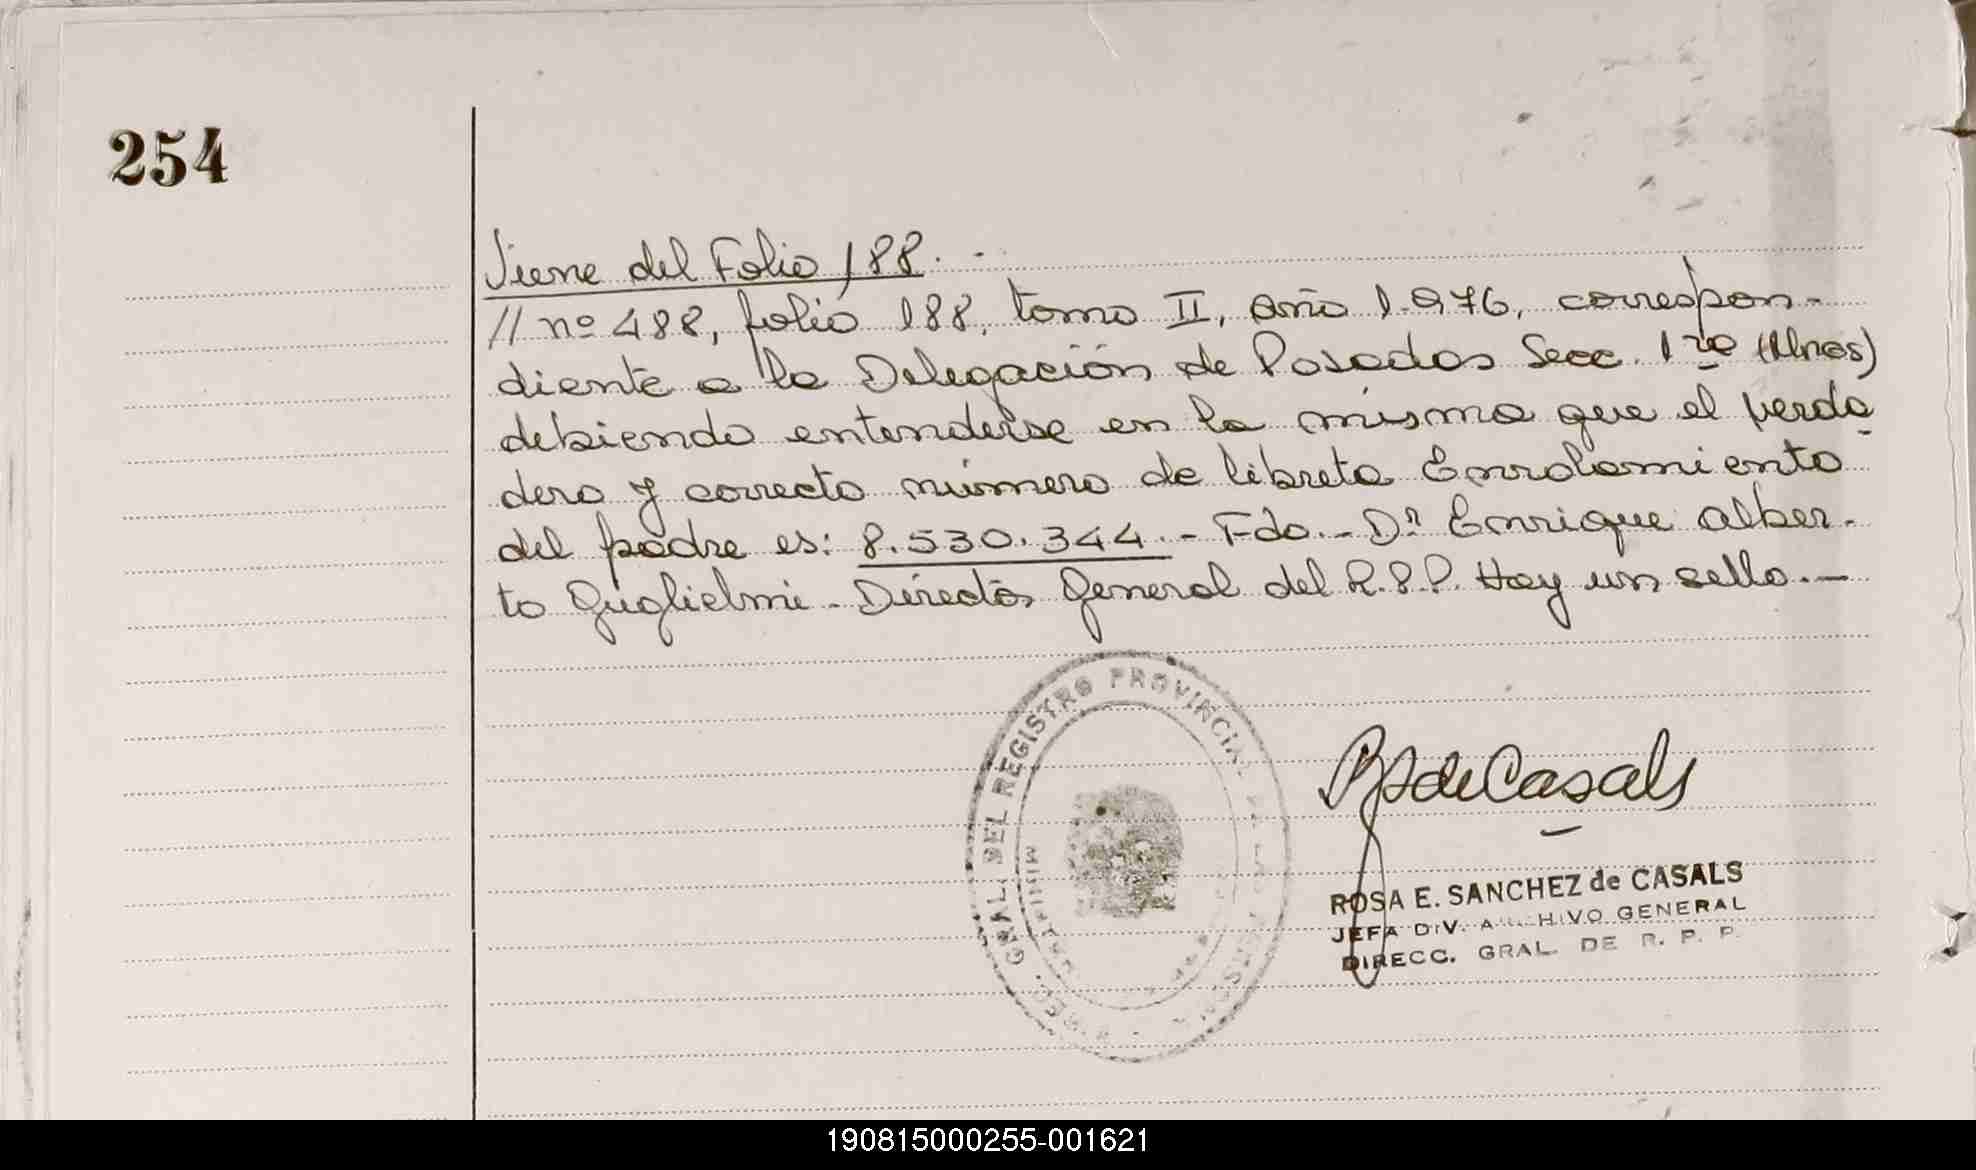 254
Viene del Folio 188. -
// nº 488, folio 188, tomo II, año 1.976, correspon-
diente a la Delegación de Posadas Secc. 1ra (Mnes)
debiendo entenderse en la misma que el verda
dero y correcto número de libreta Enrolamiento
del padre es: 8.530.344.- Fdo.- Dr Enrique Alber-
to Guglielmi - Director General del R.P.P. Hay un sello.-
GRAL. DEL REGISTRO PROVINCIAL DE LAS PERSONAS
RS de Casals
ROSA E. SANCHEZ de CASALS
JEFA DIV. ARCHIVO GENERAL
DIRECC. GRAL. DE R. P. P.
190815000255-001621